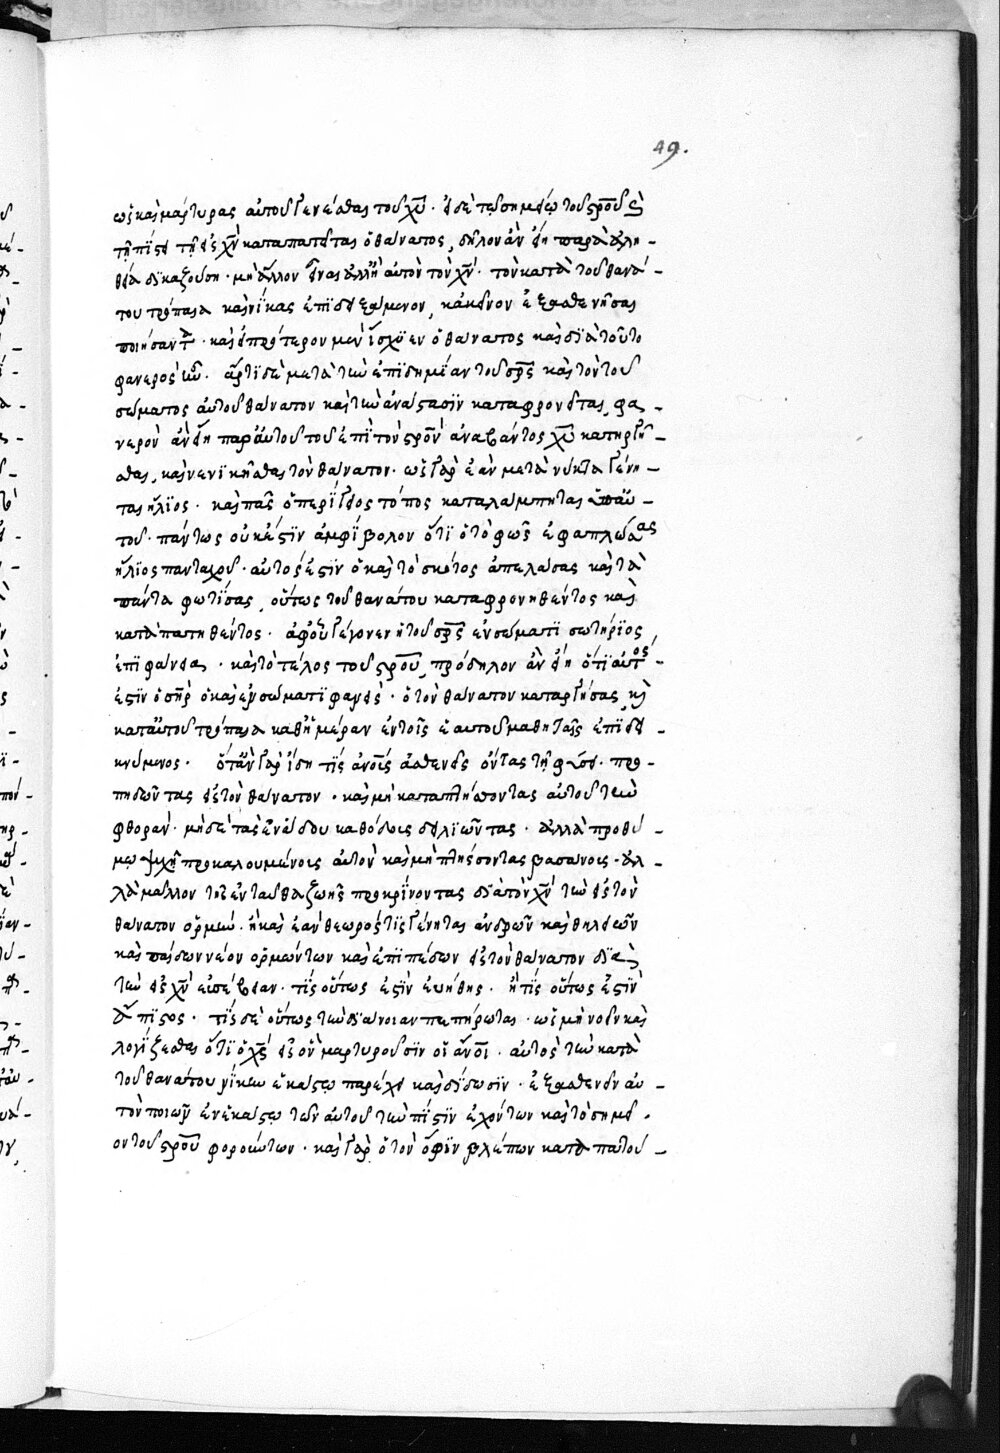 49.
ὡς καὶ μάρτυρας αὐτοῦ γενέσθαι τοῦ χυ̅. εἰ δὲ τῷ σημείῳ τοῦ σρου̅ καὶ
τῇ πίστει τῇ εἰς χν̅ καταπατεῖται ὁ θάνατος, δῆλον ἂν εἴη παρὰ ἀλη-
θείᾳ δικαζούσῃ. μὴ ἄλλον εἶναι ἀλλ' ἢ αὐτὸν τὸν χν̅. τὸν κατὰ τοῦ θανά-
του τρόπαια καὶ νίκας ἐπιδειξάμενον, κἀκεῖνον ἐξασθενῆσαι
ποιήσαντα. καὶ εἰ πρότερον μὲν ἴσχυεν ὁ θάνατος καὶ διὰ τοῦτο
φοβερὸς ἦν. ἄρτι δὲ μετὰ τὴν ἐπιδημίαν τοῦ σρ̅ς καὶ τὸν τοῦ
σώματος αὐτοῦ θάνατον καὶ τὴν ἀνάστασιν καταφρονεῖται, φα-
νερὸν ἂν εἴη παρ' αὐτοῦ τοῦ ἐπὶ τὸν σρον̅ ἀναβάντος χυ̅ κατηργῆ-
σθαι, καὶ νενικῆσθαι τὸν θάνατον. ὡς γὰρ ἐὰν μετὰ νύκτα γένη-
ται ἥλιος. καὶ πᾶς ὁ περίγειος τόπος καταλάμπηται ὑπ' αὐ-
τοῦ. πάντως οὐκ ἔστιν ἀμφίβολον ὅτι ὁ τὸ φῶς ἐφαπλώσας
ἥλιος πανταχοῦ. αὐτός ἐστιν ὁ καὶ τὸ σκότος ἀπελάσας καὶ τὰ
πάντα φωτίσας, οὕτως τοῦ θανάτου καταφρονηθέντος καὶ
καταπατηθέντος. ἀφ' οὗ γέγονεν ἡ τοῦ σρ̅ς ἐν σώματι σωτήριος
ἐπιφάνεια. καὶ τὸ τέλος τοῦ σρου̅, πρόδηλον ἂν εἴη ὅτι αὐτός
ἐστιν ὁ σηρ̅ ὁ καὶ ἐν σώματι φανείς. ὁ τὸν θάνατον καταργήσας, καὶ
κατ' αὐτοῦ τρόπαια καθ' ἡμέραν ἐν τοῖς ἑαυτοῦ μαθηταῖς ἐπιδει-
κνύμενος. ὅταν γὰρ ἴδῃ τις ἀνοις̅ ἀσθενεῖς ὄντας τῇ φύσει. προ-
πηδῶντας εἰς τὸν θάνατον. καὶ μὴ καταπτήσσοντας αὐτοῦ τὴν
φθοράν. μηδὲ τὰς ἐν ᾅδου καθόδοις δειλιῶντας. ἀλλὰ προθύ-
μῳ ψυχῇ προκαλουμένοις αὐτὸν καὶ μὴ πτήσσοντας βασάνοις. ἀλ-
λὰ μᾶλλον τῆς ἐνταῦθα ζωῆς προκρίνοντας διὰ τὸν χν̅ τὴν εἰς τὸν
θάνατον ὁρμήν. ἢ καὶ ἐὰν θεωρός τις γένηται ἀνδρῶν καὶ θηλειῶν
καὶ παίδων νέων ὁρμώντων καὶ ἐπιπέσων εἰς τὸν θάνατον διὰ
τὴν εἰς χν̅ εὐσέβειαν. τίς οὕτως ἐστὶν εὐήθης. ἢ τίς οὕτως ἐστὶν
ἄπιστος. τίς δὲ οὕτως τὴν διάνοιαν πεπήρωται. ὡς μὴ νοεῖν καὶ
λογίζεσθαι ὅτι ὁ χς̅ εἰς ὃν μαρτυροῦσιν οἱ ἀνοι̅. αὐτὸς τὴν κατὰ
τοῦ θανάτου νίκην ἑκάστῳ παρέχει καὶ δίδωσιν. ἐξασθενεῖν αὐ-
τὸν ποιῶν ἐν ἑκάστῳ τῶν αὐτοῦ τὴν πίστιν ἐχόντων καὶ τὸ σημεῖ-
ον τοῦ σρου̅ φορούντων. καὶ γὰρ ὁ τὸν ὄφιν βλέπων καταπατού-